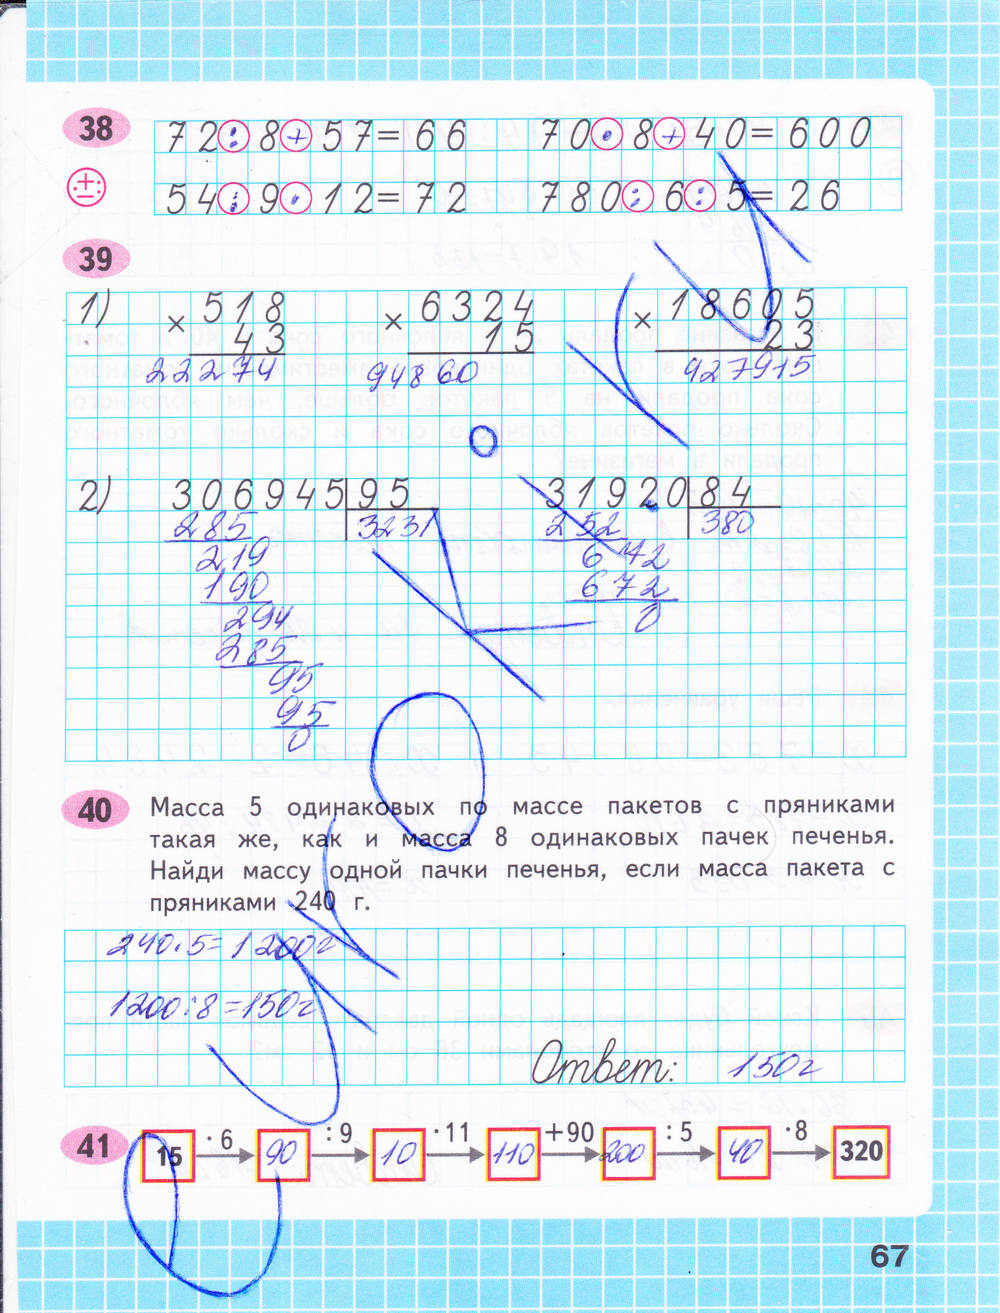 38
72 : 8 + 57 = 66 70 · 8 + 40 = 600
54 : 9 · 12 = 72 780 : 6 : 5 = 26
39
1) 518 6324 18605
× 43 × 15 × 23
22274 94860 427915
2) 306945 95 31920 84
285 3231 252 380
219 672
190 672
294 0
285
95
95
0
40 Масса 5 одинаковых по массе пакетов с пряниками
такая же, как и масса 8 одинаковых пачек печенья.
Найди массу одной пачки печенья, если масса пакета с
пряниками 240 г.
240·5=1200г
1200:8=150г
Ответ: 150г
41 · 6 : 9 · 11 +90 : 5 · 8
15 90 10 110 200 40 320
67